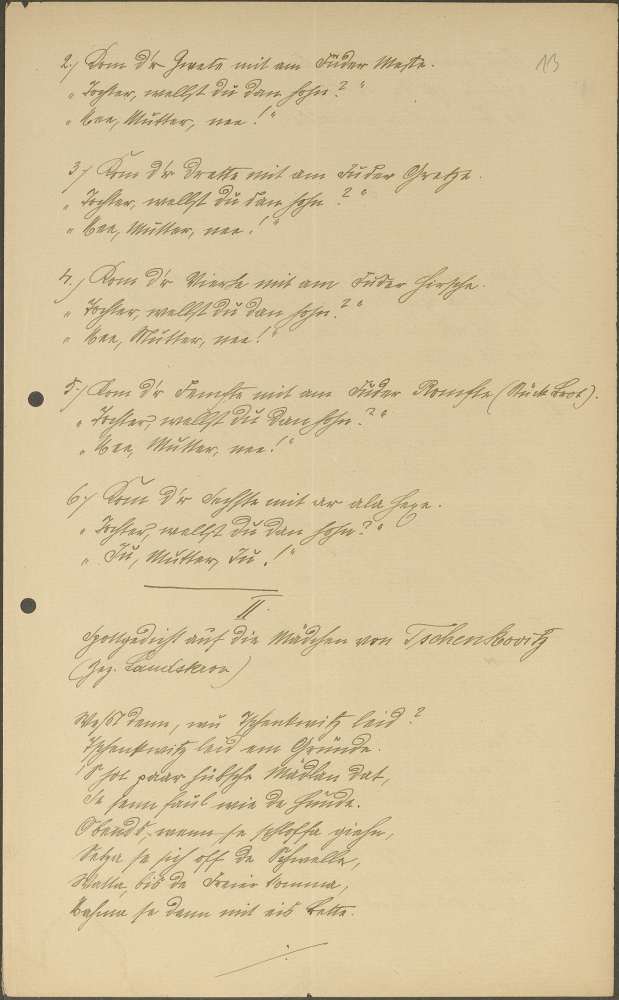 13
2./ Kom d'r Zweete mit am Fuder Meste.
"Tochter, wellst du dan hohn?"
"Nee, Mutter, nee!"
3./ Kom d'r Dretta mit am Fuder Gretze.
"Tochter, wellst du dan hohn?"
"Nee, Mutter, nee!"
4./ Kom d'r Vierte mit am Fuder Hirsche.
"Tochter, wellst du dan hohn?"
"Nee, Mutter, nee!"
5./ Kom d'r Femfte mit am Fuder Romfte (Stück Brot).
"Tochter, wellst du dan hohn?"
"Nee, Mutter, nee!"
6./ Kom d'r Sechste mit ar ala Hexe.
"Tochter, wellst du dan hohn?"
"Ju, Mutter, Ju!"
II.
Spottgedicht auf die Mädchen von Tschenkovitz
(Bez. Landskron)
Weßt denn, wu Tschenkwitz leid?
Tschenkwitz leid em Grunde.
'S hot paar hübsche Mädlan dat,
Se senn faul wie de Hunde.
Obends, wenn se schloffa giehn,
Setza se sich off de Schwelle,
Watta, bis de Freier komma,
Nahma se dann mit eis Bette.